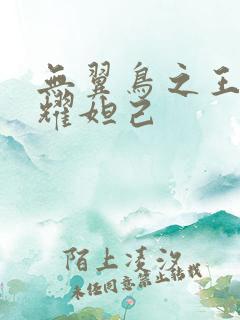 無翼鳥之王
耀妲己
陌上凌汐
未经同意禁止转载